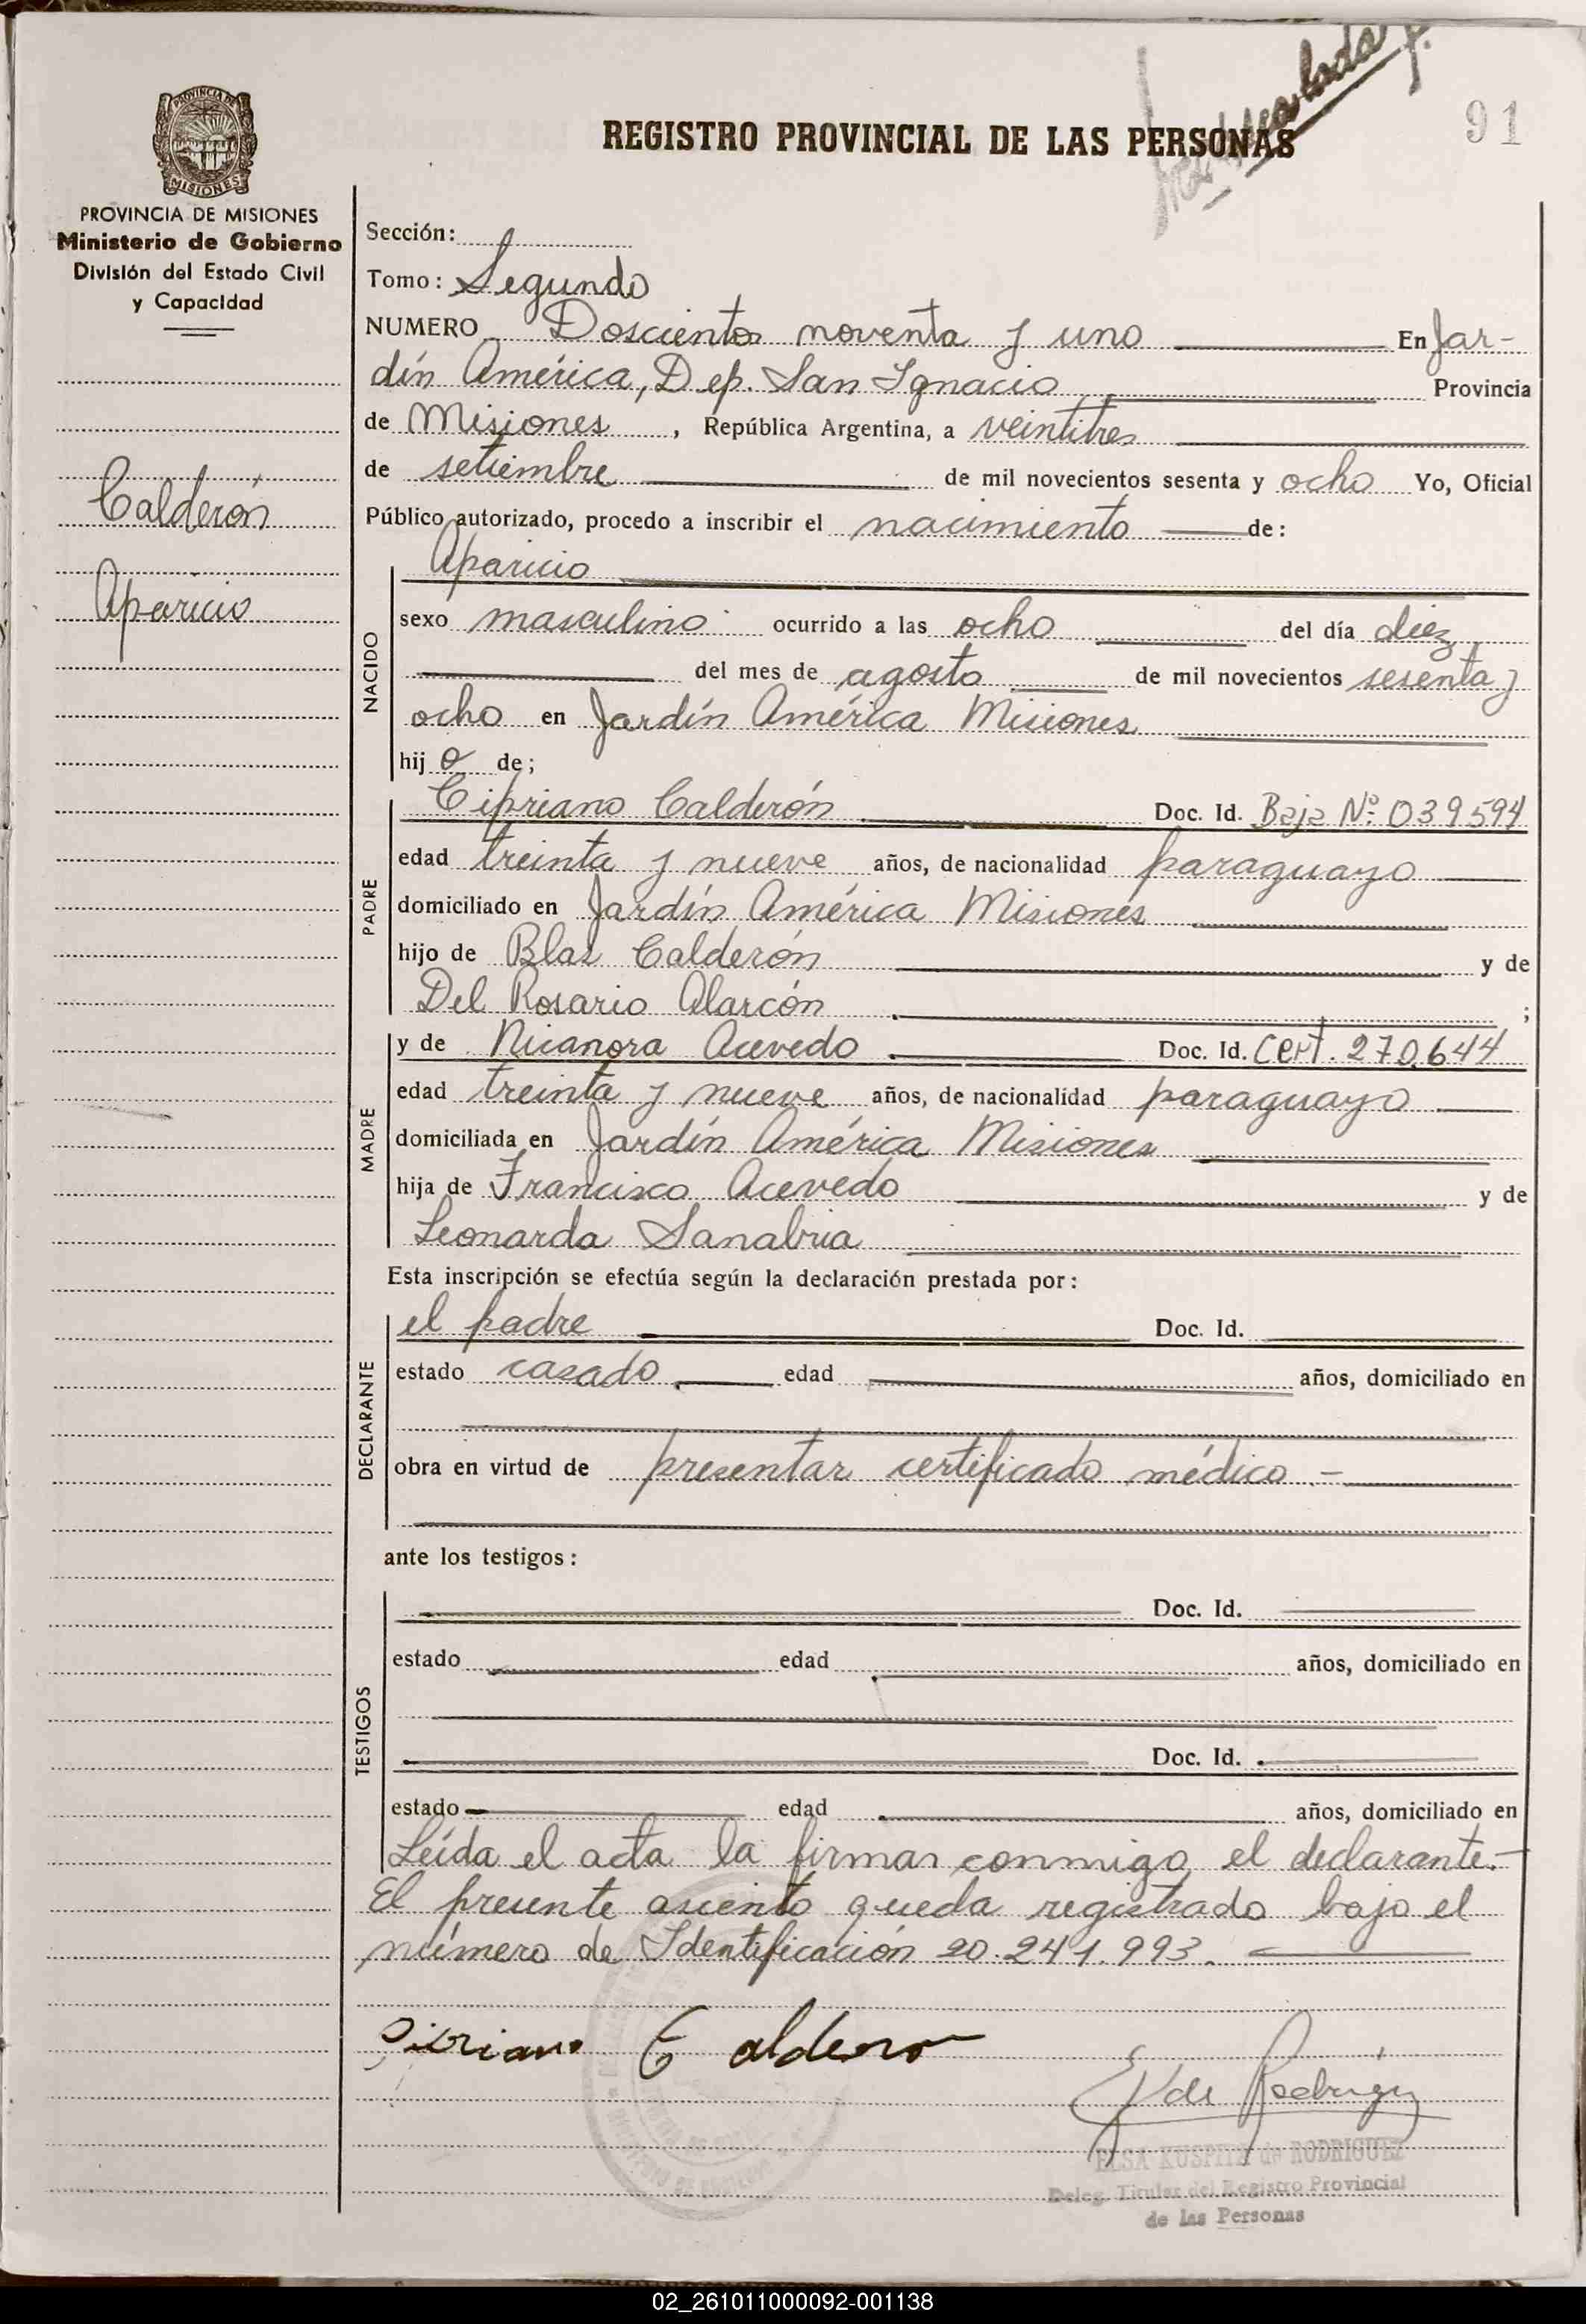 91
REGISTRO PROVINCIAL DE LAS PERSONAS
PROVINCIA DE
MISIONES
PROVINCIA DE MISIONES
Ministerio de Gobierno
División del Estado Civil
y Capacidad
Calderón
Aparicio
Sección:
Tomo: Segundo
NUMERO Doscientos noventa y uno En Jar-
dín América, Dep. San Ignacio Provincia
de Misiones, República Argentina, a veintitres
de setiembre de mil novecientos sesenta y ocho Yo, Oficial
Público autorizado, procedo a inscribir el nacimiento de:
NACIDO
Aparicio
sexo masculino ocurrido a las ocho del día diez
del mes de agosto de mil novecientos sesenta y
ocho en Jardín América Misiones
hij o de;
PADRE
Cipriano Calderón Doc. Id. Baja Nº: 039594
edad treinta y nueve años, de nacionalidad paraguayo
domiciliado en Jardín América Misiones
hijo de Blas Calderón y de
Del Rosario Alarcón ;
MADRE
y de Nicanora Acevedo Doc. Id. Cert. 270.644
edad treinta y nueve años, de nacionalidad paraguayo
domiciliada en Jardín América Misiones
hija de Francisco Acevedo y de
Leonarda Sanabria
Esta inscripción se efectúa según la declaración prestada por:
DECLARANTE
el padre Doc. Id.
estado casado edad años, domiciliado en
obra en virtud de presentar certificado médico.-
ante los testigos:
TESTIGOS
Doc. Id.
estado edad años, domiciliado en
Doc. Id.
estado edad años, domiciliado en
Leída el acta la firman conmigo el declarante.-
El presente asiento queda registrado bajo el
número de Identificación 20.241.993.
Cipriano Caldero
E K de Rodriguez
ELSA KUSPITA de RODRIGUEZ
Deleg. Titular del Registro Provincial
de las Personas
02_261011000092-001138